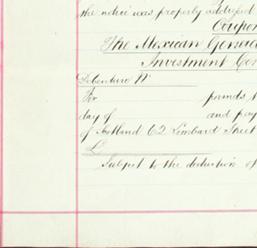 the notice was properly addressed
Coupon
The Mexican General
Investment Co
Debenture No
For pounds
day of and pay
of Scotland 62 Lombard Street
£
Subject to the deduction of